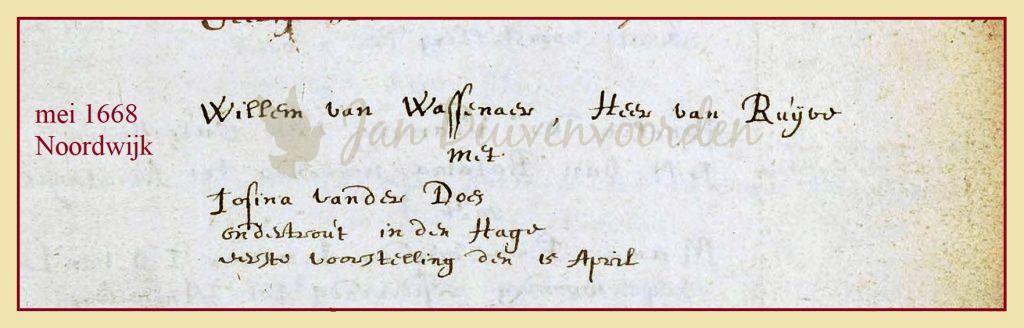 mei 1668
Noordwijk
Willem van Wassenaer, Heer van Ruÿve
met
Josina vander Does
ondertrout in den Hage
eerste voorstelling den 15 April
Jan Duivenvoorden